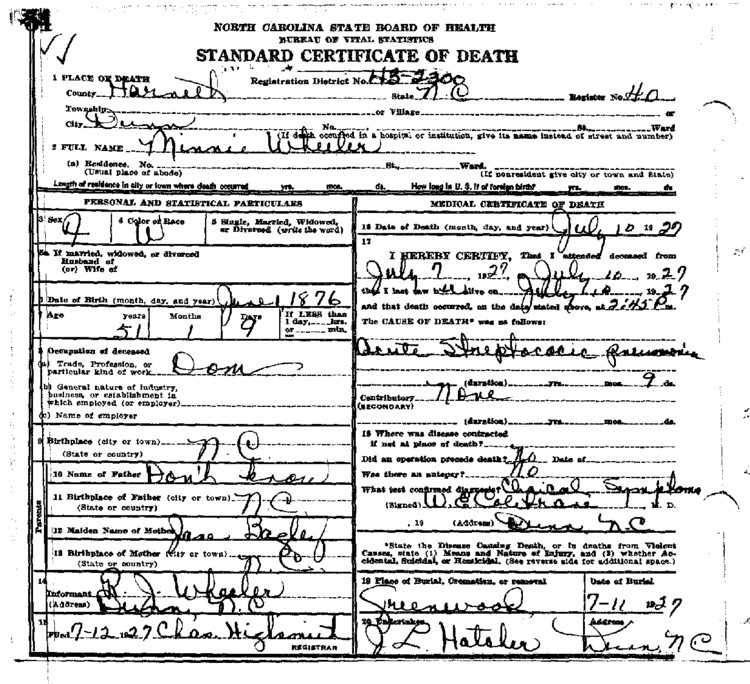 NORTH CAROLINA STATE BOARD OF HEALTH
BUREAU OF VITAL STATISTICS
STANDARD CERTIFICATE OF DEATH
1 PLACE OF DEATH
Registration District No. 43-2300
County Harnett State N C Register No. 40
Township or Village or
City Dunn No. St. Ward
(If death occurred in a hospital or institution, give its name instead of street and number)
2 FULL NAME Minnie Wheeler
(a) Residence. No. St., Ward.
(Usual place of abode) (If nonresident give city or town and State)
Length of residence in city or town where death occurred yrs. mos. ds. How long in U. S. if of foreign birth? yrs. mos. ds.
PERSONAL AND STATISTICAL PARTICULARS
3 Sex 4 Color or Race 5 Single, Married, Widowed,
or Divorced (write the word)
W
5a If married, widowed, or divorced
Husband of
(or) Wife of
6 Date of Birth (month, day, and year) June 1 1876
7 Age years Months Days If LESS than
1 day, hrs.
51 1 9 or min.
8 Occupation of deceased
(a) Trade, Profession, or
particular kind of work Dom
(b) General nature of industry,
business, or establishment in
which employed (or employer)
(c) Name of employer
9 Birthplace (city or town) N C
(State or country)
Parents
10 Name of Father Don't know
11 Birthplace of Father (city or town) N C
(State or country)
12 Maiden Name of Mother Jane Bagley
13 Birthplace of Mother (city or town) N C
(State or country)
14
Informant R. J. Wheeler
(Address) Dunn, N. C
15
Filed 7-12 1927 Chas. Highsmith
REGISTRAR
MEDICAL CERTIFICATE OF DEATH
16 Date of Death (month, day, and year) July 10 1927
17
I HEREBY CERTIFY, That I attended deceased from
July 7, 1927, July 10, 1927
that I last saw her alive on July 10, 1927
and that death occurred, on the date stated above, at 2:45 P m.
The CAUSE OF DEATH* was as follows:
Acute Streptococcic pneumonia
(duration) yrs. mos. 9 ds.
Contributory None
(SECONDARY)
(duration) yrs. mos. ds.
18 Where was disease contracted
if not at place of death?
Did an operation precede death? No Date of
Was there an autopsy? No
What test confirmed diagnosis? Clinical Symptoms
(Signed) W. E. Coltrane M. D.
, 19 (Address) Dunn N. C.
*State the Disease Causing Death, or in deaths from Violent
Causes, state (1) Means and Nature of Injury, and (2) whether Ac-
cidental, Suicidal, or Homicidal. (See reverse side for additional space.)
19 Place of Burial, Cremation, or removal Date of Burial
Greenwood 7-11 1927
20 Undertaker Address
J L Hatcher Dunn, N C